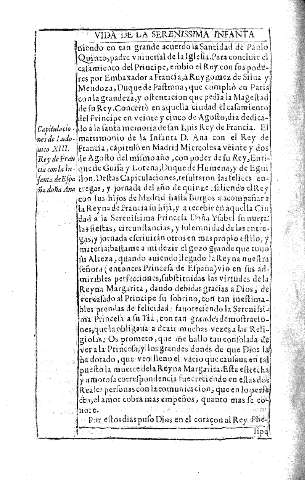 VIDA DE LA SERENISSIMA INFANTA
niendo en tan grande acuerdo la Santidad de Paulo
Quinto, padre vniuersal de la Iglesia. Para concluir el
casamiento del Principe, embio el Rey con sus pode-
res por Embaxador a Francia, a Ruy gomez de Silua y
Mendoza, Duque de Pastrana, que cumplio en Paris
con la grandeza, y ostentacion que pedia la Magestad
de su Rey. Concertò en aquella ciudad el casamiento
del Principe en veinte y cinco de Agosto, dia dedica-
do a la santa memoria de san Luis Rey de Francia. El
matrimonio de la Infanta D. Ana con el Rey de
Francia, capitulò en Madrid Miercoles a veinte y dos
de Agosto del mismo año, con poder de su Rey, Enri-
que de Guisa y Lorena, Duque de Humena, y de Egui-
llon. Destas Capitulaciones, resultaron las felices en-
tregas, y jornada del año de quinze, siruiendo el Rey
con sus hijos de Madrid hasta Burgos a acompañar a
la Reyna de Francia su hija, y a recebir en aquella Ciu-
dad a la Serenissima Princesa Doña Ysabel su nuera:
las fiestas, circunstancias, y solemnidad de las entre-
gas, y jornada escriuiràn otros en mas propio estilo, y
materia bastame a mi dezir el gozo grande que tomò
su Alteza, quando auiendo llegado la Reyna nuestra
señora (entonces Princesa de España) vio en sus ad-
mirables perfecciones, substituidas las virtudes de la
Reyna Margarita, dando debidas gracias a Dios, de
ver casado al Principe su sobrino, con tan inestima-
bles prendas de felicidad: fauoreciendo la Serenissi-
ma Princesa a su Tia, con tan grandes demostracio-
nes, que la obligaua a dezir muchas vezes a las Reli-
giosas: Os prometo, que me hallo tan consolada de
ver a la Princesa, y los grandes dones de que Dios la
ha dotado, que ven lleno el vacio que causaua en tal
puesto la muerte de la Reyna Margarita. Este estrecha
y amorosa correspondencia fue creciendo en estas dos
Reales personas con la comunicacion, que en lo perfe-
cto, el amor cobra mas empeños, quanto mas se co-
noce.
Por estos dias puso Dios en el coraçon al Rey Phe-
lipe
Capitulacio-
nes de Ludo
uico XIII.
Rey de Fran
cia con la In-
fanta de Espa
ña doña Ana